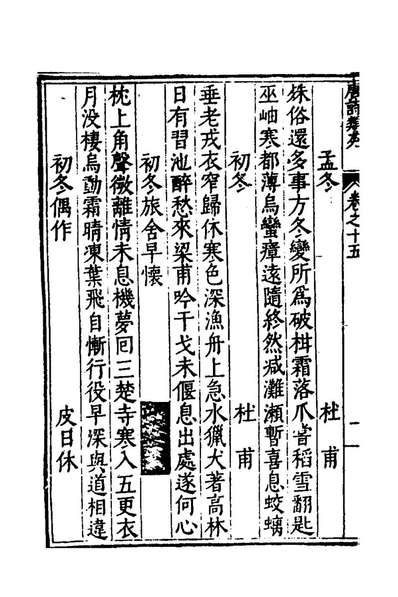 唐詩類苑 卷之十五
孟冬 杜甫
殊俗還多事方冬變所為破柑霜落爪嘗稻雪翻匙
巫岫寒都薄烏蠻瘴遠隨終然減灘瀨暫喜息蛟螭
初冬 杜甫
垂老戎衣窄歸休寒色深漁舟上急水獵犬著高林
日有習池醉愁來梁甫吟干戈未偃息出處遂何心
初冬旅舍早懷
枕上角聲微離情未息機夢回三楚寺寒入五更衣
月没棲烏動霜晴凍葉飛自慚行役早深與道相違
初冬偶作 皮日休